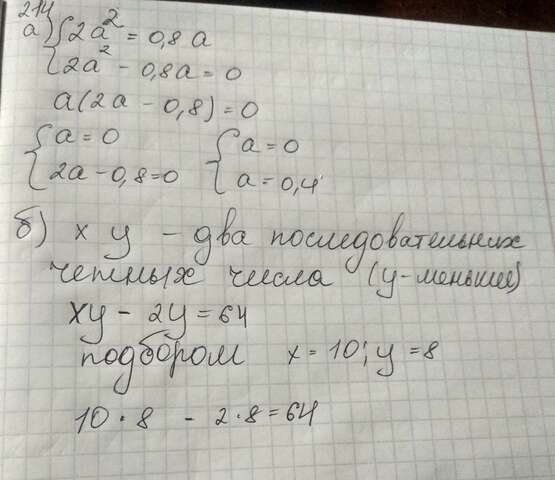 214
а) { 2a² = 0,8a
{ 2a² - 0,8a = 0
a(2a - 0,8) = 0
{ a = 0 { a = 0
{ 2a - 0,8 = 0 { a = 0,4
б) x y - два последовательных
четных числа (y - меньшее)
xy - 2y = 64
подбором x = 10; y = 8
10 · 8 - 2 · 8 = 64